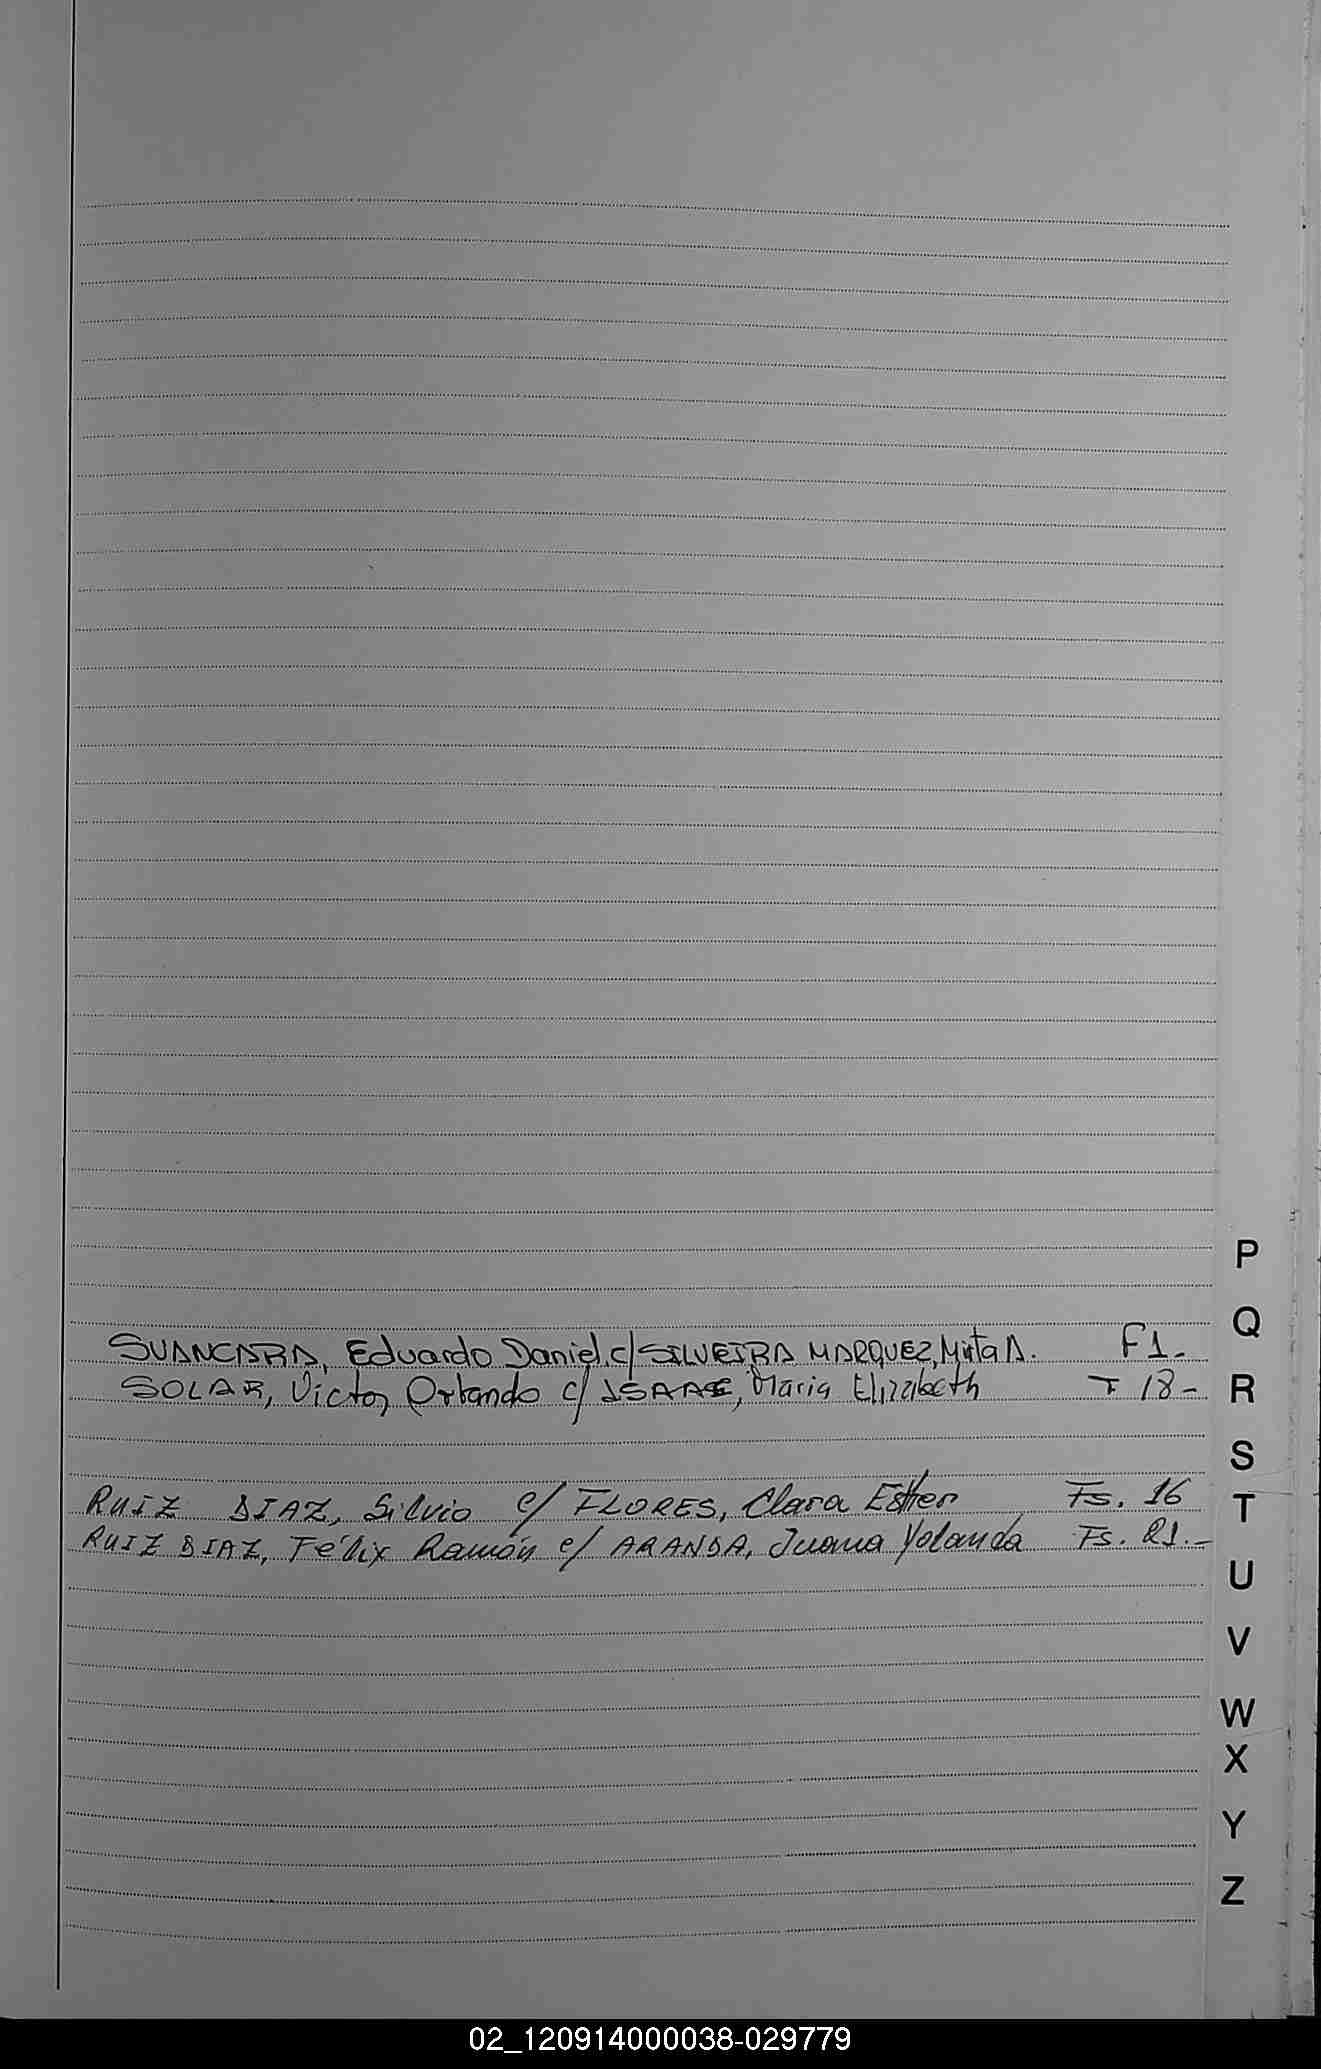 P
Q
SUANCABA, Eduardo Daniel c/ SILVEIRA MARQUEZ, Mirta A. F1.-
SOLAR, Victor Orlando c/ ISAAC, Maria Elizabeth F 18-
R
S
RUIZ DIAZ, Silvio c/ FLORES, Clara Esther Fs. 16
T
RUIZ DIAZ, Félix Ramón c/ ARANDA, Juana Yolanda Fs. 21.-
U
V
W
X
Y
Z
02_120914000038-029779